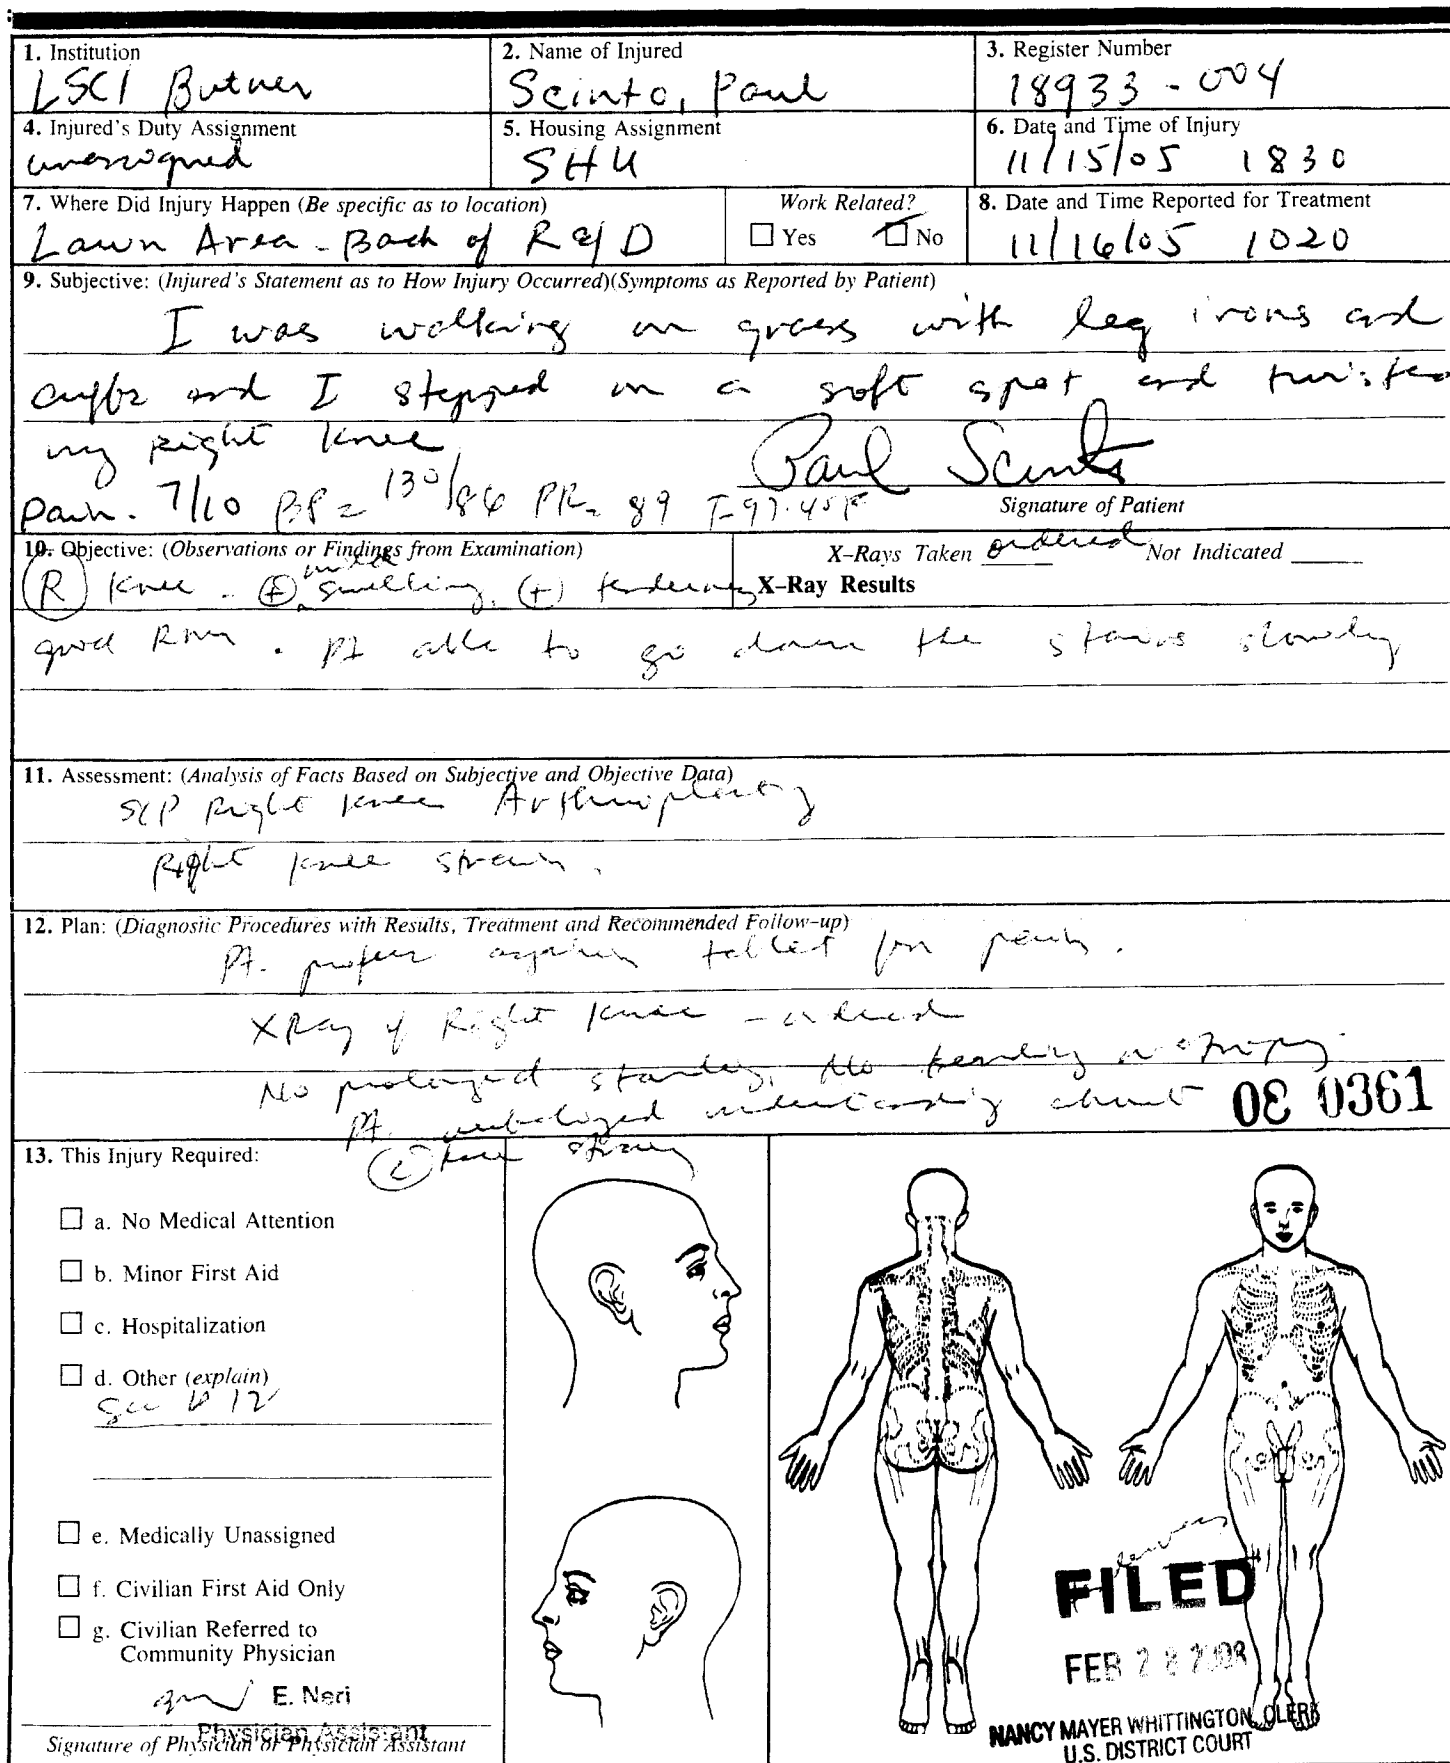 1. Institution
LSCI Butner
2. Name of Injured
Scinto, Paul
3. Register Number
18933-004
4. Injured's Duty Assignment
unassigned
5. Housing Assignment
SHU
6. Date and Time of Injury
11/15/05 1830
7. Where Did Injury Happen (Be specific as to location)
Lawn Area - Back of R & D
Work Related?
Yes No
8. Date and Time Reported for Treatment
11/16/05 1020
9. Subjective: (Injured's Statement as to How Injury Occurred)(Symptoms as Reported by Patient)
I was walking on grass with leg irons and
cuffs and I stepped on a soft spot and twisted
my Right knee
Paul Scinto
Pain. 7/10 BP = 130/86 PR = 89 T-97.45F
Signature of Patient
10. Objective: (Observations or Findings from Examination)
X-Rays Taken ordered Not Indicated
R knee - (+) mild swelling, (+) tenderness
X-Ray Results
good ROM. Pt able to go down the stairs slowly
11. Assessment: (Analysis of Facts Based on Subjective and Objective Data)
S/P Right knee Arthroplasty
Right knee strain.
12. Plan: (Diagnostic Procedures with Results, Treatment and Recommended Follow-up)
Pt. prefer aspirin tablet for pain.
XRay of Right knee - ordered
No prolonged standing, No bending or
Pt. verbalized understanding about
08 0361
knee
13. This Injury Required:
a. No Medical Attention
b. Minor First Aid
c. Hospitalization
d. Other (explain)
See # 12
e. Medically Unassigned
f. Civilian First Aid Only
g. Civilian Referred to
Community Physician
E. Neri
Physician Assistant
Signature of Physician or Physician Assistant
FILED
FEB 28 2008
NANCY MAYER WHITTINGTON, CLERK
U.S. DISTRICT COURT